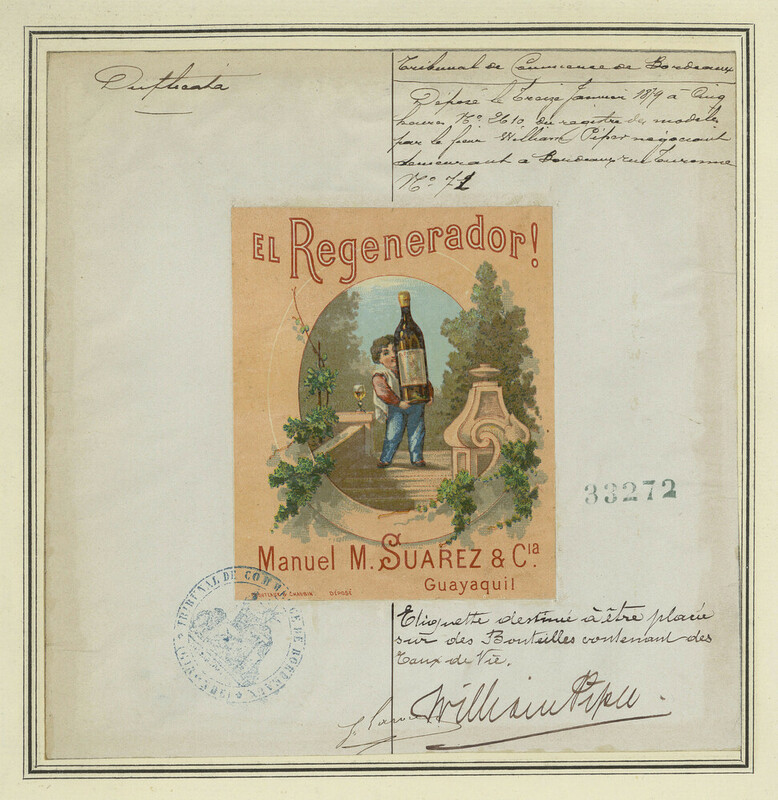 Duplicata
Tribunal de Commerce de Bordeaux
Déposé le Treize Janvier 1879 à Cinq
heures No. 2610 du registre des modèles
par le sieur William Piper négociant
demeurant à Bordeaux rue Turenne
No 71
EL Regenerador!
33272
Manuel M. SUAREZ & Cia.
Guayaquil
CHAUBIN. DÉPOSÉ
TRIBUNAL DE COMMERCE DE BORDEAUX
Etiquette destiné à être placée
sur des Bouteilles contenant des
Eaux de Vie.
William Piper